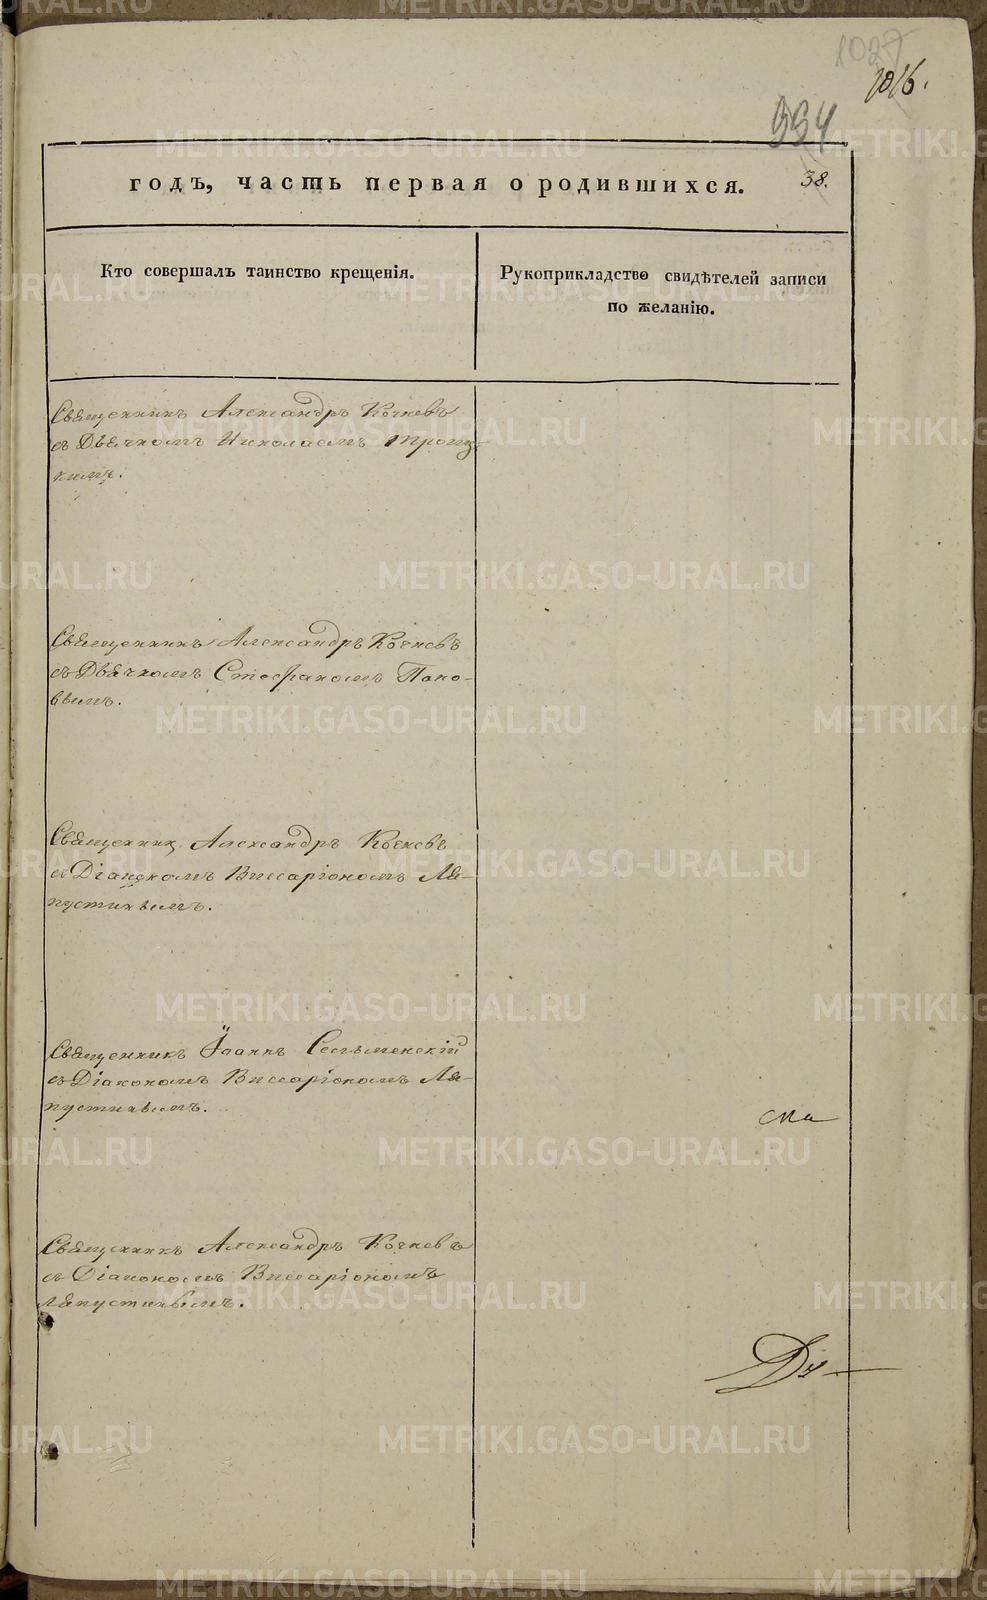 1027
1016.
994
38.
годъ, часть первая о родившихся.
Кто совершалъ таинство крещенія.
Рукоприкладство свидѣтелей записи
по желанію.
Священникъ Александръ Кочневъ
съ Дьячкомъ Николаемъ Троиц-
кимъ.
Священникъ Александръ Кочневъ
съ Дьячкомъ Стефаномъ Попо-
вымъ.
Священникъ Александръ Кочневъ
съ Діакономъ Виссаріономъ Ля-
пустинымъ.
Священникъ Іоаннъ
съ Діакономъ Виссаріономъ Ля-
пустинымъ.
Священникъ Александръ Кочневъ
съ Діакономъ Виссаріономъ
Ляпустинымъ.
METRIKI.GASO-URAL.RU